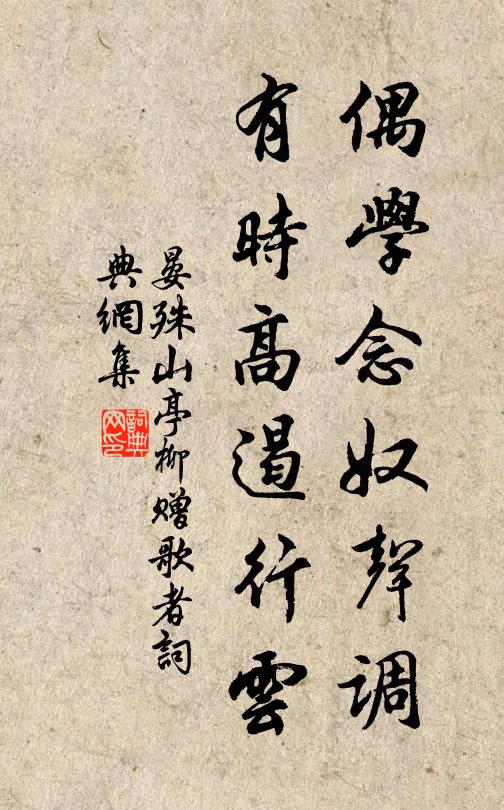 偶學念奴聲调
有時高遏行雲
晏殊山亭柳赠歌者詞
典網集
詞典网印